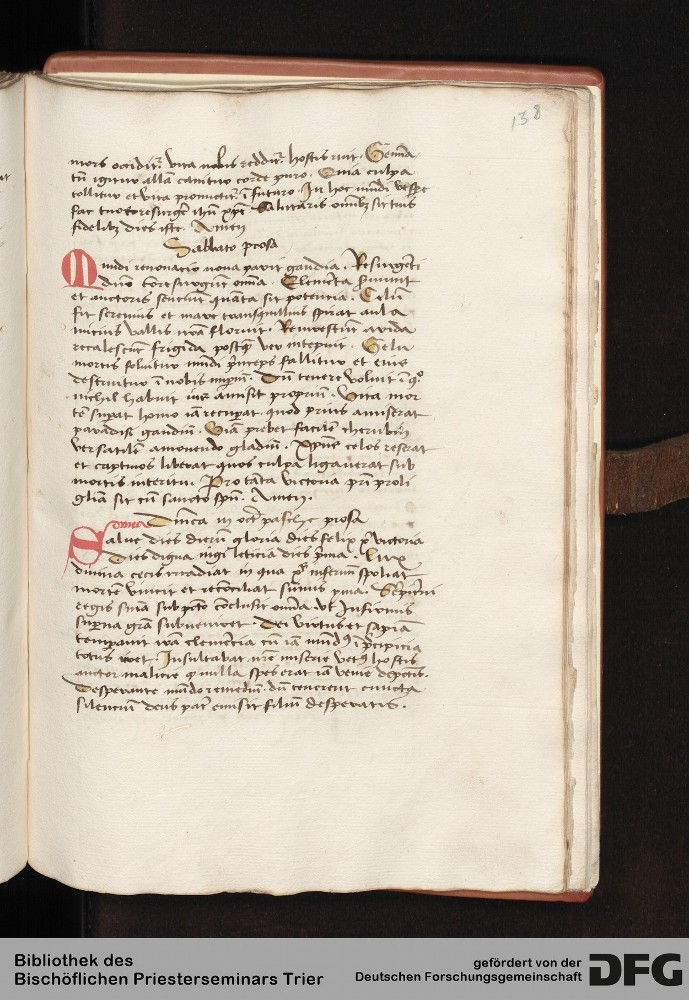 138
mors occidit². vita nobis reddit². hostis ruit. Gemĩa
tũ igitur allã canitur corde puro. Quia culpa
tollitur et vita promittit² ĩ futuro. In hoc mũdi vespe
fac tuos resurgẽ ihũ xp̃e Salutaris omĩbꝫ sit tuis
fidelibꝫ dies iste. Amen
Sabbato prosa
Mundi renovacio nova parit gaudia. Resurgẽti
dño cõresurgũt omĩa. Elemẽta ẜviunt
et auctoris senciũt quãta sit potencia. Celũ
fit serenius et mare tranquillius spirat aula
micius vallis nrã floruit. Revirescũt arida
recalescũt frigida postqᷓ ver intepuit. Gelu
mortis solvitur mũdi princeps fallitur et eius
destruitur ĩ nobis imperiũ. Dũ tenere voluit ĩ qº
nichil habuit ius amisit propriũ. Vita mor
tẽ supat homo iã recupat. quod prius amiserat
paradisi gaudiũ. Viã prebet facilẽ cherubin
versatilẽ amovendo gladiũ. Xp̃us celos reserat
et captivos liberat quos culpa ligaverat sub
mortis interitu. Pro tãta victoria pr̃i proli
gliã sit cũ sancto sp̃u. Amen.
Dm̃ca in oct² pasche prosa
Salve dies dierũ gloria dies felix xp̃i victoria
Dies digna iugi leticia dies p̃ma. Lux
divina cecis irradiat in qua xp̃s infernũ spoliat
mortẽ vincit et recõciliat sũmis yma. Sẽpit²ni
regis snĩa sub pctõ cõclusit omĩa. vt Infirmis
sup̃na grã subveniret. Dei virtus et sapĩa
temperavit irã clemẽcia cũ iã mũdꝰ ĩ p̃cipicia
totus iret. Insultabat nr̃e miserie vetꝰ hostis
auctor malicie qꝛ nulla spes erat iã venie
Desperante mũdo remediũ. dũ tenerent cuncta
silenciũ deus pater emisit filiũ desperatis.
Bibliothek des
Bischöflichen Priesterseminars Trier
gefördert von der
Deutschen Forschungsgemeinschaft
DFG